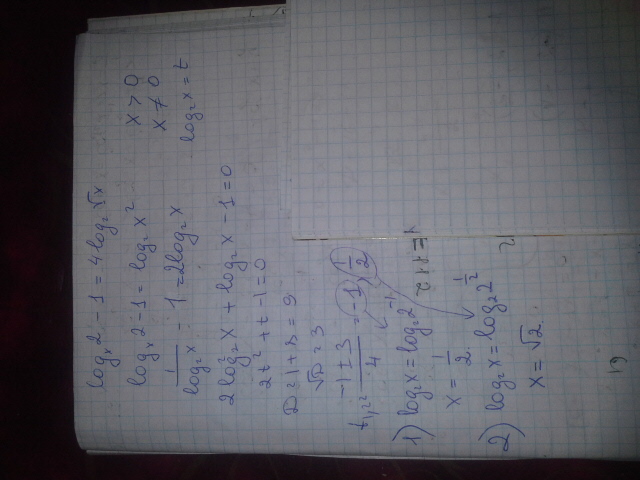 logₓ2 - 1 = 4log₂√x
logₓ2 - 1 = log₂x²
x > 0
x ≠ 0
1/log₂x - 1 = 2log₂x
log₂x = t
2log₂²x + log₂x - 1 = 0
2t² + t - 1 = 0
D = 1 + 8 = 9
√D = 3
t₁,₂ = (-1 ± 3)/4 = -1, 1/2
1) log₂x = log₂2⁻¹
x = 1/2
2) log₂x = log₂2^(1/2)
x = √2